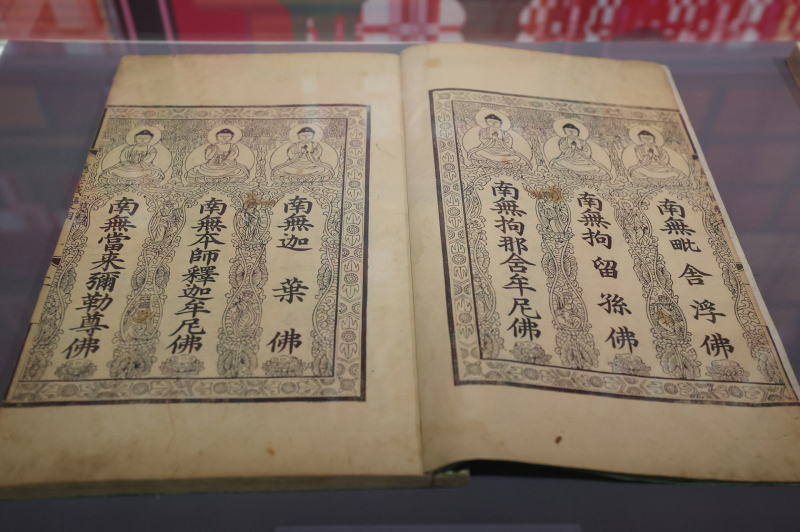 南無毗舍浮佛
南無拘留孫佛
南無拘那舍牟尼佛
南無迦葉佛
南無本師釋迦牟尼佛
南無當來彌勒尊佛